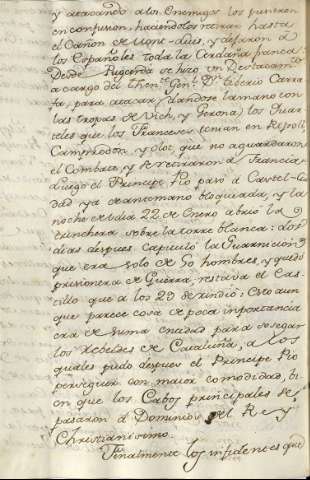 y atacando a los Enemigos los pusieron
en confusion, haciendolos retirar hasta
el Cañon de Mont-Luis, y dejaron à
los Españoles toda la Cerdaña francesa
Desde Puigcerda se hizo un Destacam.to
a cargo del Then.te Gen.l D.n Tiberio Carra-
fa, para atacar (dandose la mano con
las tropas de Vich, y Gerona) los Quar-
teles que los Franceses tenian en Ripoll,
Campredon y Olot, que no aguardaron
el Combate, y se retiraron à Francia,
luego el Principe Pio pasó à Castel-Ciu-
dad ya de antemano bloqueada, y la
noche del dia 22 de Enero abrio la
trinchera sobre la torre blanca: dos
dias despues Capitulò la Guarnicion
que era solo de 50 hombres, y quedó
prisionera de Guerra, restava el Cas-
tillo que a los 29 se rindió; Esto aun
que parece cosa de poca importancia
era de suma entidad para sosegar
los Rebeldes de Cataluña, a los
quales pudo despues el Principe Pio
perseguir con maior comodidad, bi-
en que los Cabos principales se
pasaron à Dominios del Rey
Christianisimo.
Finalmente los infidentes que